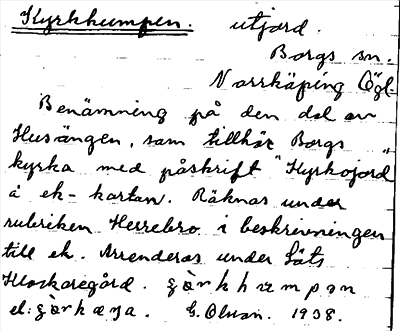 Kyrkhumpen. utjord.
Borgs sn.
Norrköping Ögl.
Benämning på den del av
Husängen, som tillhör Borgs
kyrka med påskrift "Kyrkojord"
å ek-kartan. Räknas under
rubriken Herrebro i beskrivningen
till ek. Arrenderas under Låts
Klockaregård.
el. G. Olson. 1938.